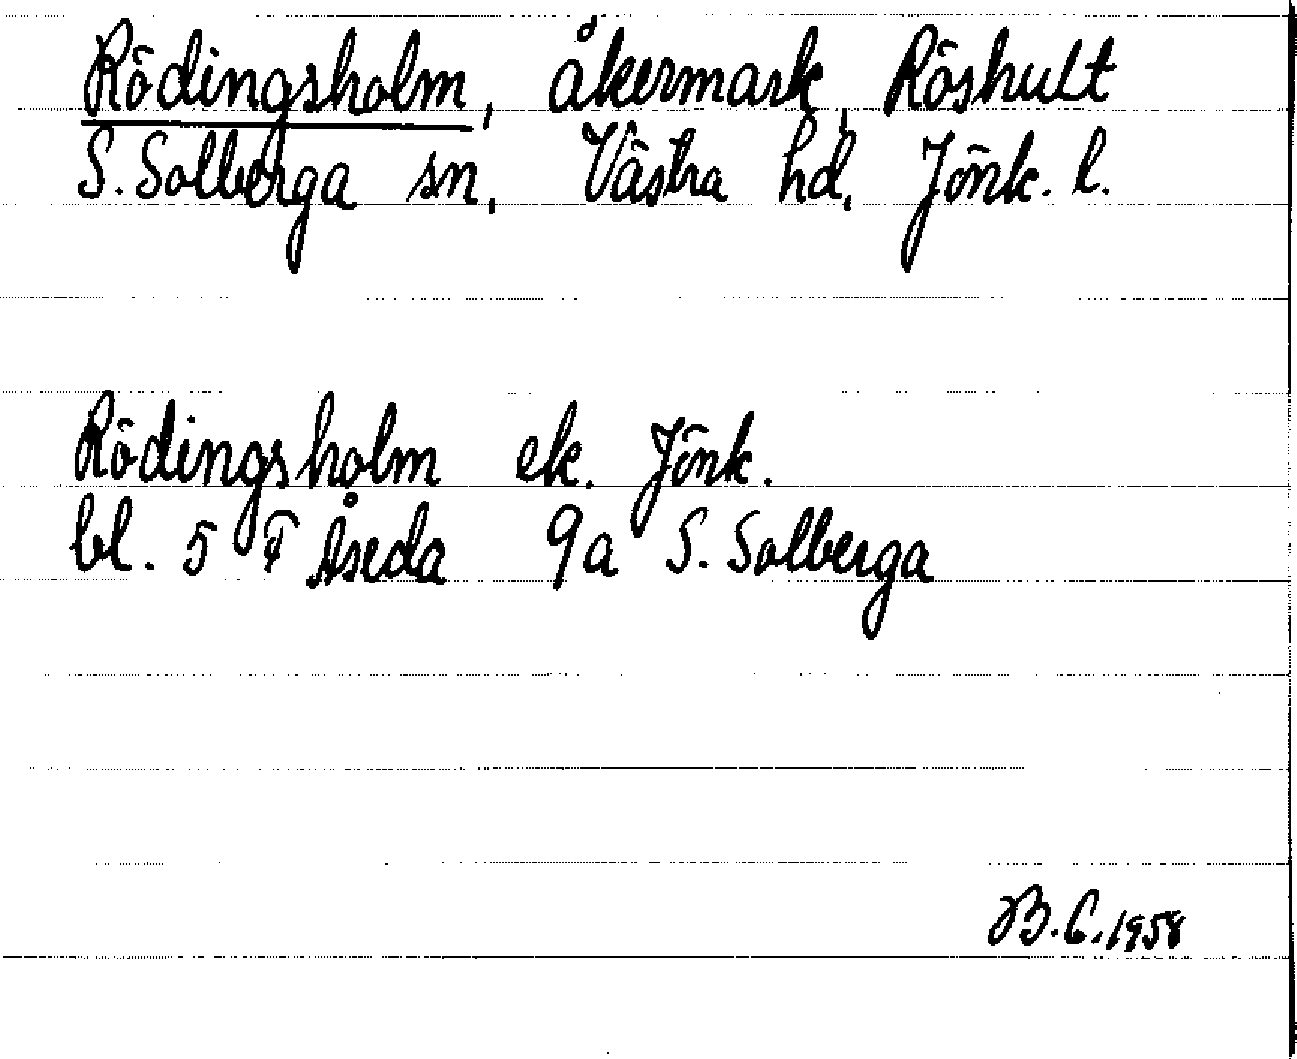 Rödingsholm, åkermark, Röshult
S. Solberga sn, Västra hd, Jönk. l.
Rödingsholm ek. Jönk.
bl. 5 F Åseda 9a S. Solberga
B.C. 1958